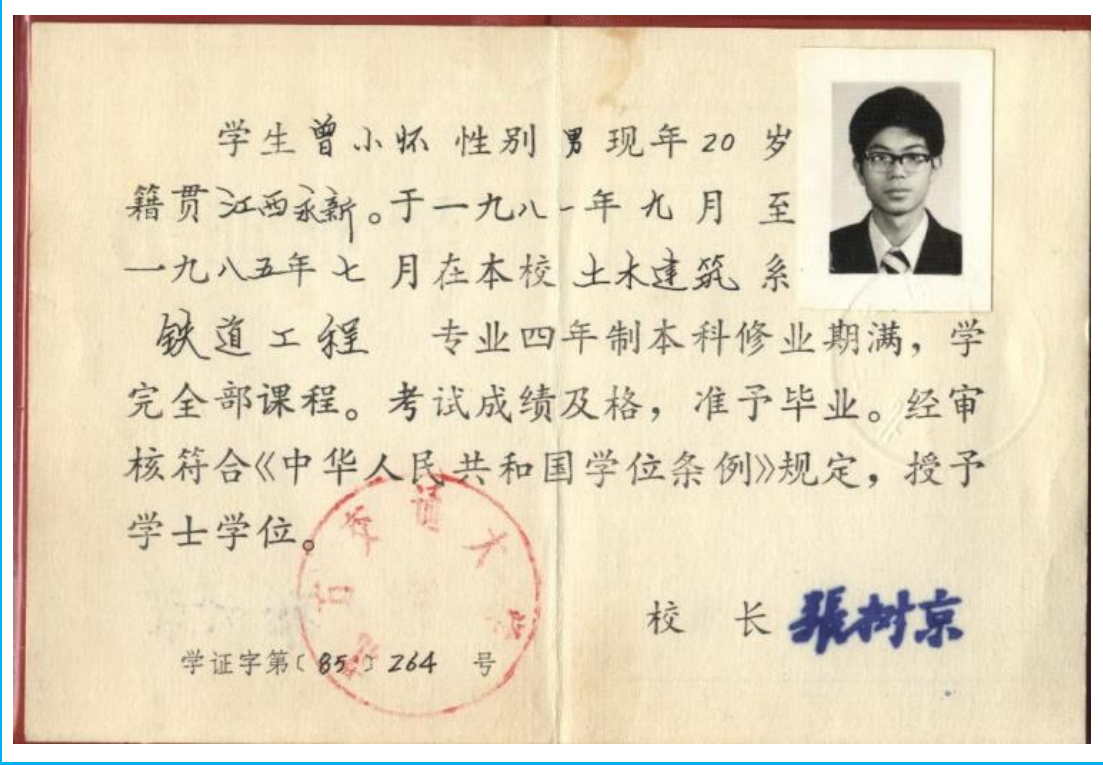 学生曾小怀 性别 男 现年 20 岁
籍贯江西永新。于一九八一年九月至
一九八五年七月在本校土木建筑系
铁道工程 专业四年制本科修业期满，学
完全部课程。考试成绩及格，准予毕业。经审
核符合《中华人民共和国学位条例》规定，授予
学士学位。
校 长 張树京
学证字第〔85〕264 号